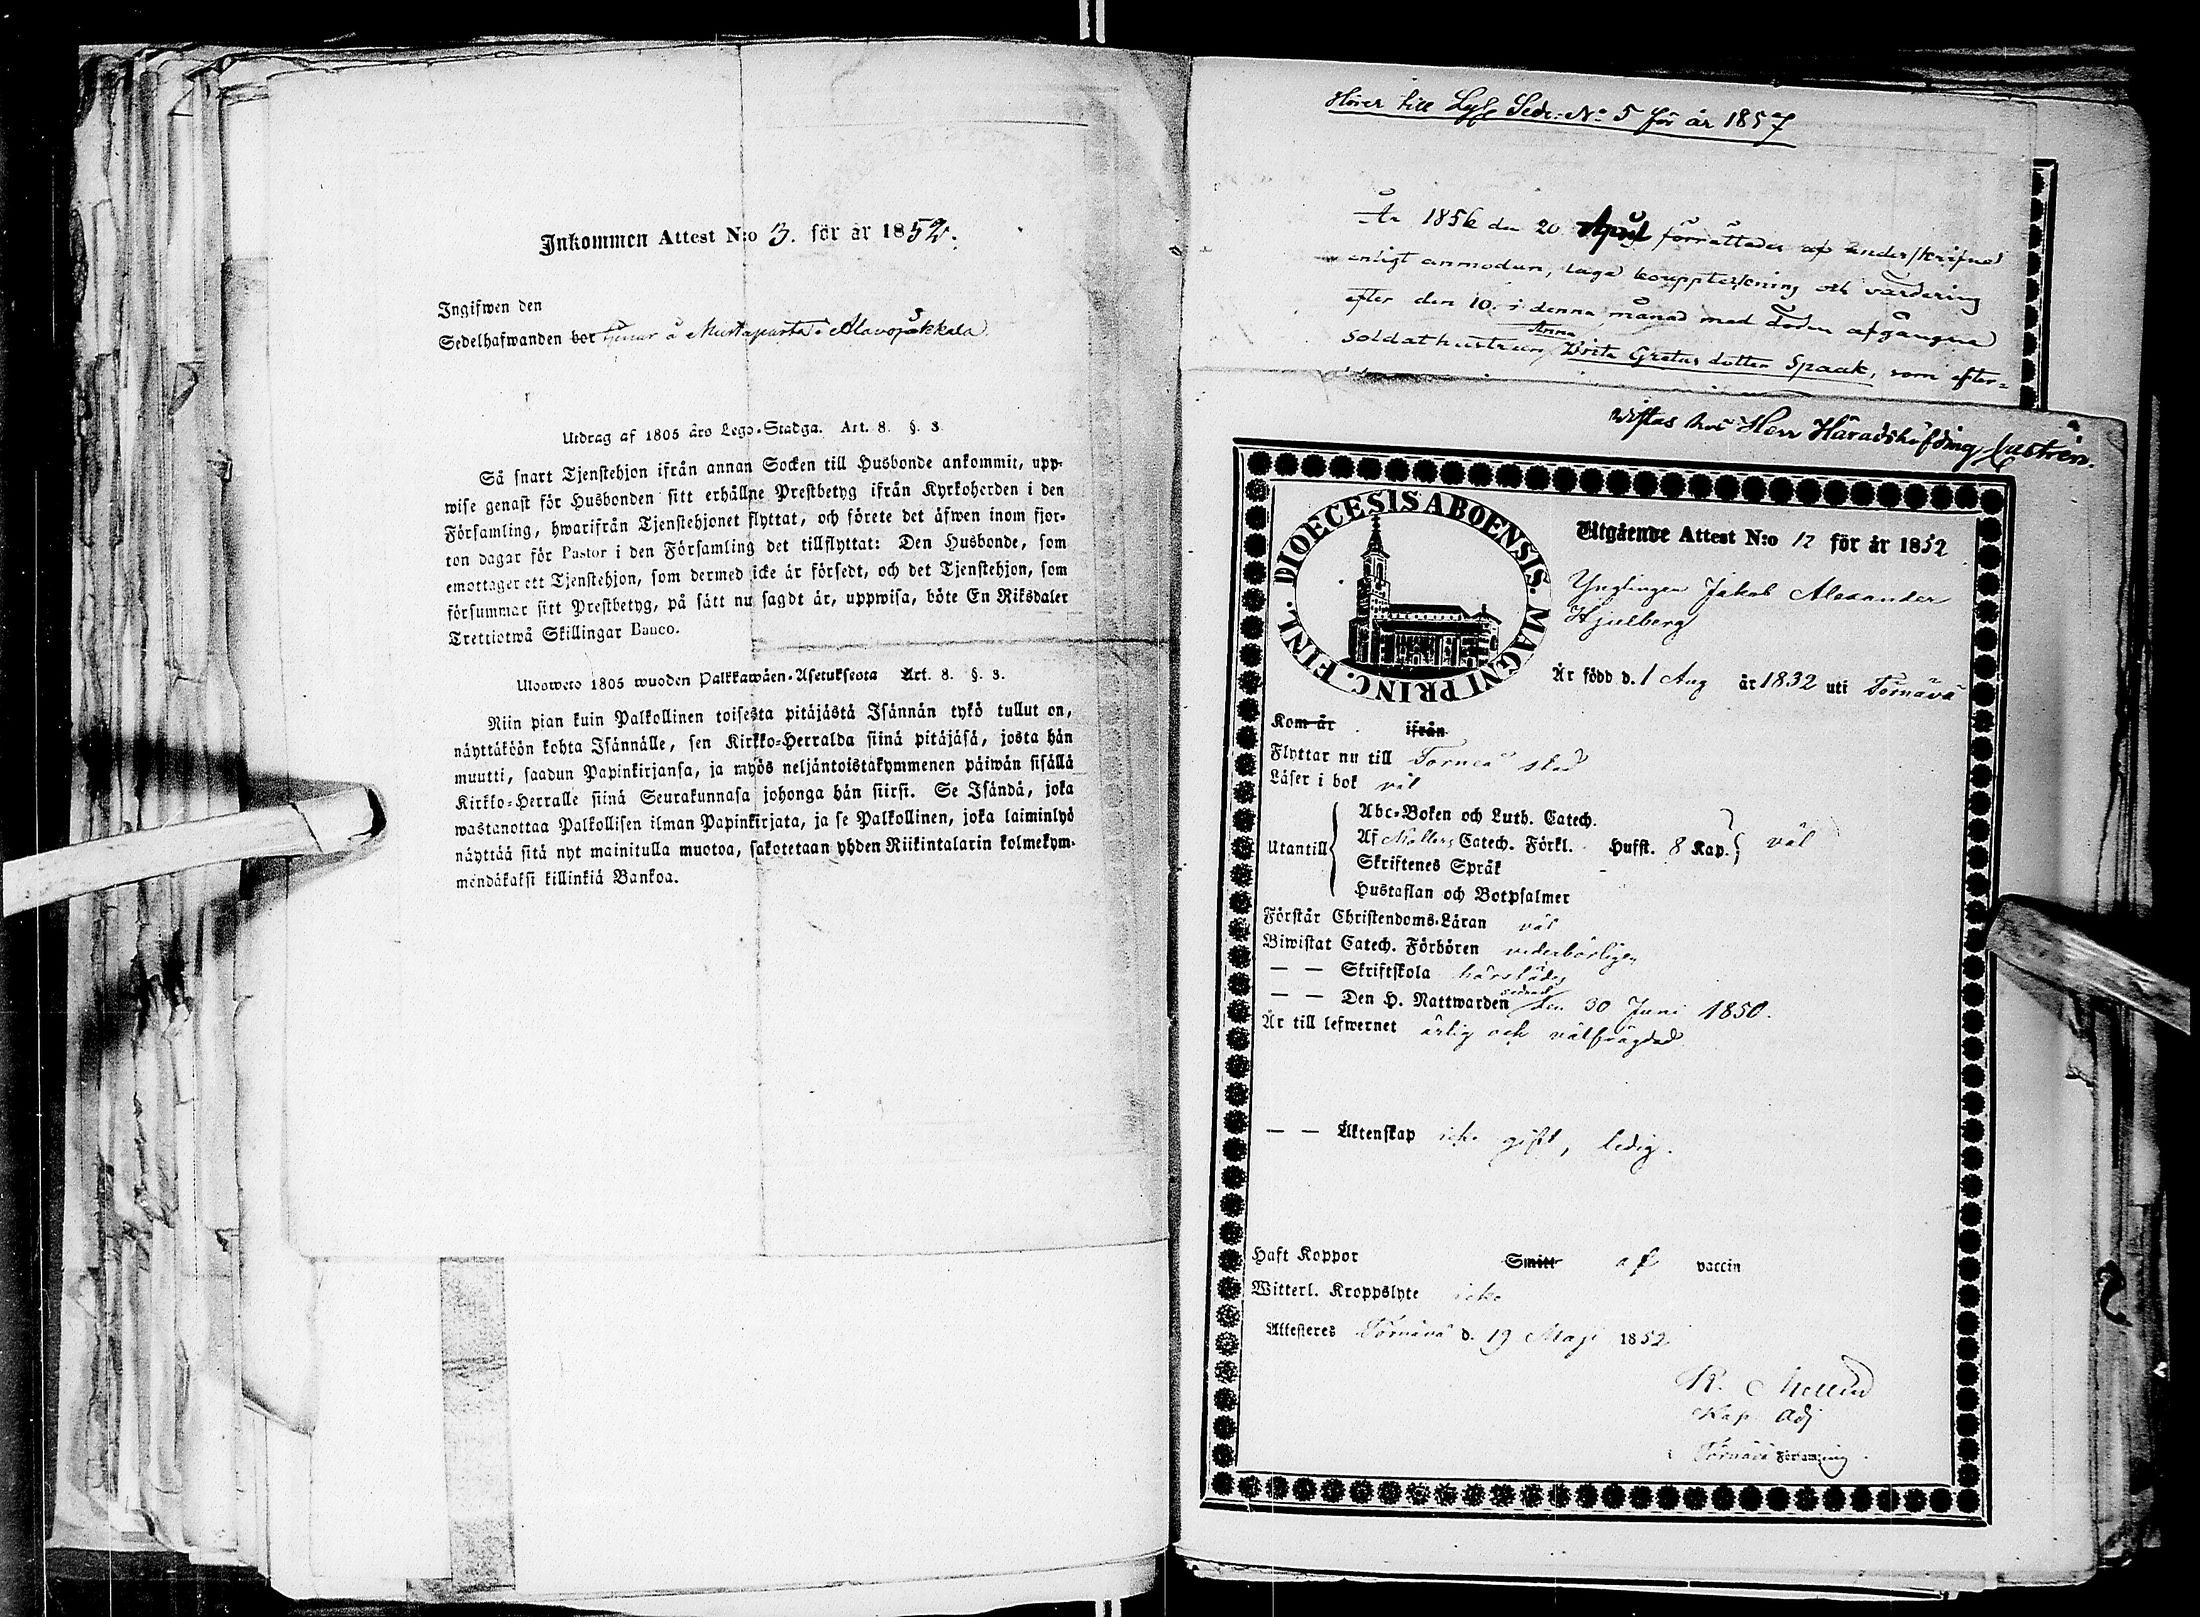 Inkommen Attest N:o 3. för år 1852.
Ingifwen den
Sedelhafwanden bor tjenar å Mustaparta i Alavojakkala
Utdrag af 1805 års Lego-Stadga. Art. 8. §. 3
Så snart Tjenstehjon ifrån annan Socken till Husbonde ankommit, upp-
wise genast för Husbonden sitt erhållne Prestbetyg ifrån Kyrkoherden i den
Församling, hwarifrån Tjenstehjonet flyttat, och förete det äfwen inom fjor-
ton dagar för Pastor i den Församling det tillflyttat: Den Husbonde, som
emottager ett Tjenstehjon, som dermed icke är försedt, och det Tjenstehjon, som
försummar sitt Prestbetyg, på sätt nu sagdt är, uppwisa, böte En Riksdaler
Trettiotwå Skillingar Banco.
Ulosweto 1805 wuoden Palkkawäen-Asetuksesta Art. 8. §. 3.
Niin pian kuin Palkollinen toisesta pitäjästä Isännän tykö tullut on,
näyttäköön kohta Isännälle, sen Kirkko-Herralda siinä pitäjäsä, josta hän
muutti, saadun Papinkirjansa, ja myös neljäntoistakymmenen päiwän sisällä
Kirkko-Herralle siinä Seurakunnasa johonga hän siirsi. Se Isändä, joka
wastanottaa Palkollisen ilman Papinkirjata, ja se Palkollinen, joka laiminlyö
näyttää sitä nyt mainitulla muotoa, sakotetaan yhden Riikintalarin kolmekym-
mendäkaksi killinkiä Bankoa.
Hörer till Lyf Sedr: No 5 för år 1857
År 1856 den 20 April förrättades af underskrifned
enligt anmodan, laga bouppteckning och värdering
efter den 10. i denna månad med döden afgångna
Anna
Soldathustrun Brita Gretas dotter Spaak, som efter-
wistas hos Herr Häradshöfding Castrén.
DIOECESIS ABOENSIS. MAGNI PRINC. FINL.
Utgående Attest N:o 12 för år 1852
Ynglingen Jakob Alexander
Hjulberg
Är född d. 1 Aug år 1832 uti Törnävä
Kom år ifrån
Flyttar nu till Torneå stad
Läser i bok väl
Abc-Boken och Luth. Catech.
Utantill Af Möllers Catech. Förkl. Hufst. 8 Kap. väl
Skriftenes Språk
Hustaflan och Botpsalmer
Förstår Christendoms-Läran väl
Biwistat Catech. Förhören vederbörligen
— — Skriftskola härstädes
— — Den H. Nattwarden sednast den 30 Juni 1850.
Är till lefwernet ärlig och välfrägdad
— — Äktenskap icke gift, ledig.
Haft Koppor Smitt af vaccin
Witterl. Kroppslyte icke
Attesteres Törnävä d. 19 Maji 1852
K. Mellin
Kap Adj
Törnävä Församling.